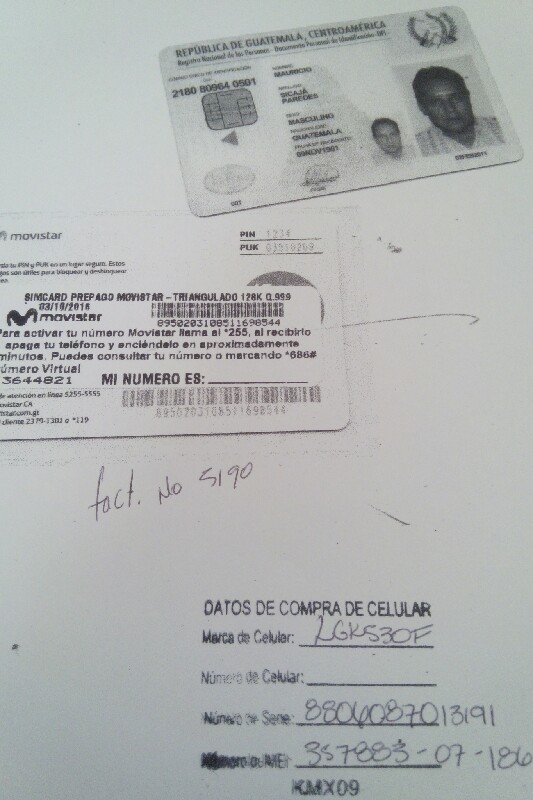 REPÚBLICA DE GUATEMALA, CENTROAMÉRICA
Registro Nacional de las Personas - Documento Personal de Identificación-DPI
2180 80964 0501
MAURICIO
SICAJÁ
PAREDES
MASCULINO
NACIONALIDAD
GUATEMALA
09NOV1991
movistar
PIN 1234
PUK
tu PIN y PUK en un lugar seguro. Estos
son útiles para bloquear y desbloquear
SIMCARD PREPAGO MOVISTAR - TRIANGULADO 128K Q.999
03/10/2016
movistar
8950203108511698544
Para activar tu número Movistar llama al *255, al recibirlo
apaga tu teléfono y enciéndelo en aproximadamente
minutos. Puedes consultar tu número o marcando *686#
Número Virtual
3644821 MI NUMERO ES:
de atención en línea 5255-5555
movistar CA
movistar.com.gt
cliente 2379-1301 o *119
8950203108511698544
fact. No 5190
DATOS DE COMPRA DE CELULAR
Marca de Celular: LGK530F
Número de Celular:
Número de Serie: 8806087013191
Número IMEI: 357883-07-186
KMX09